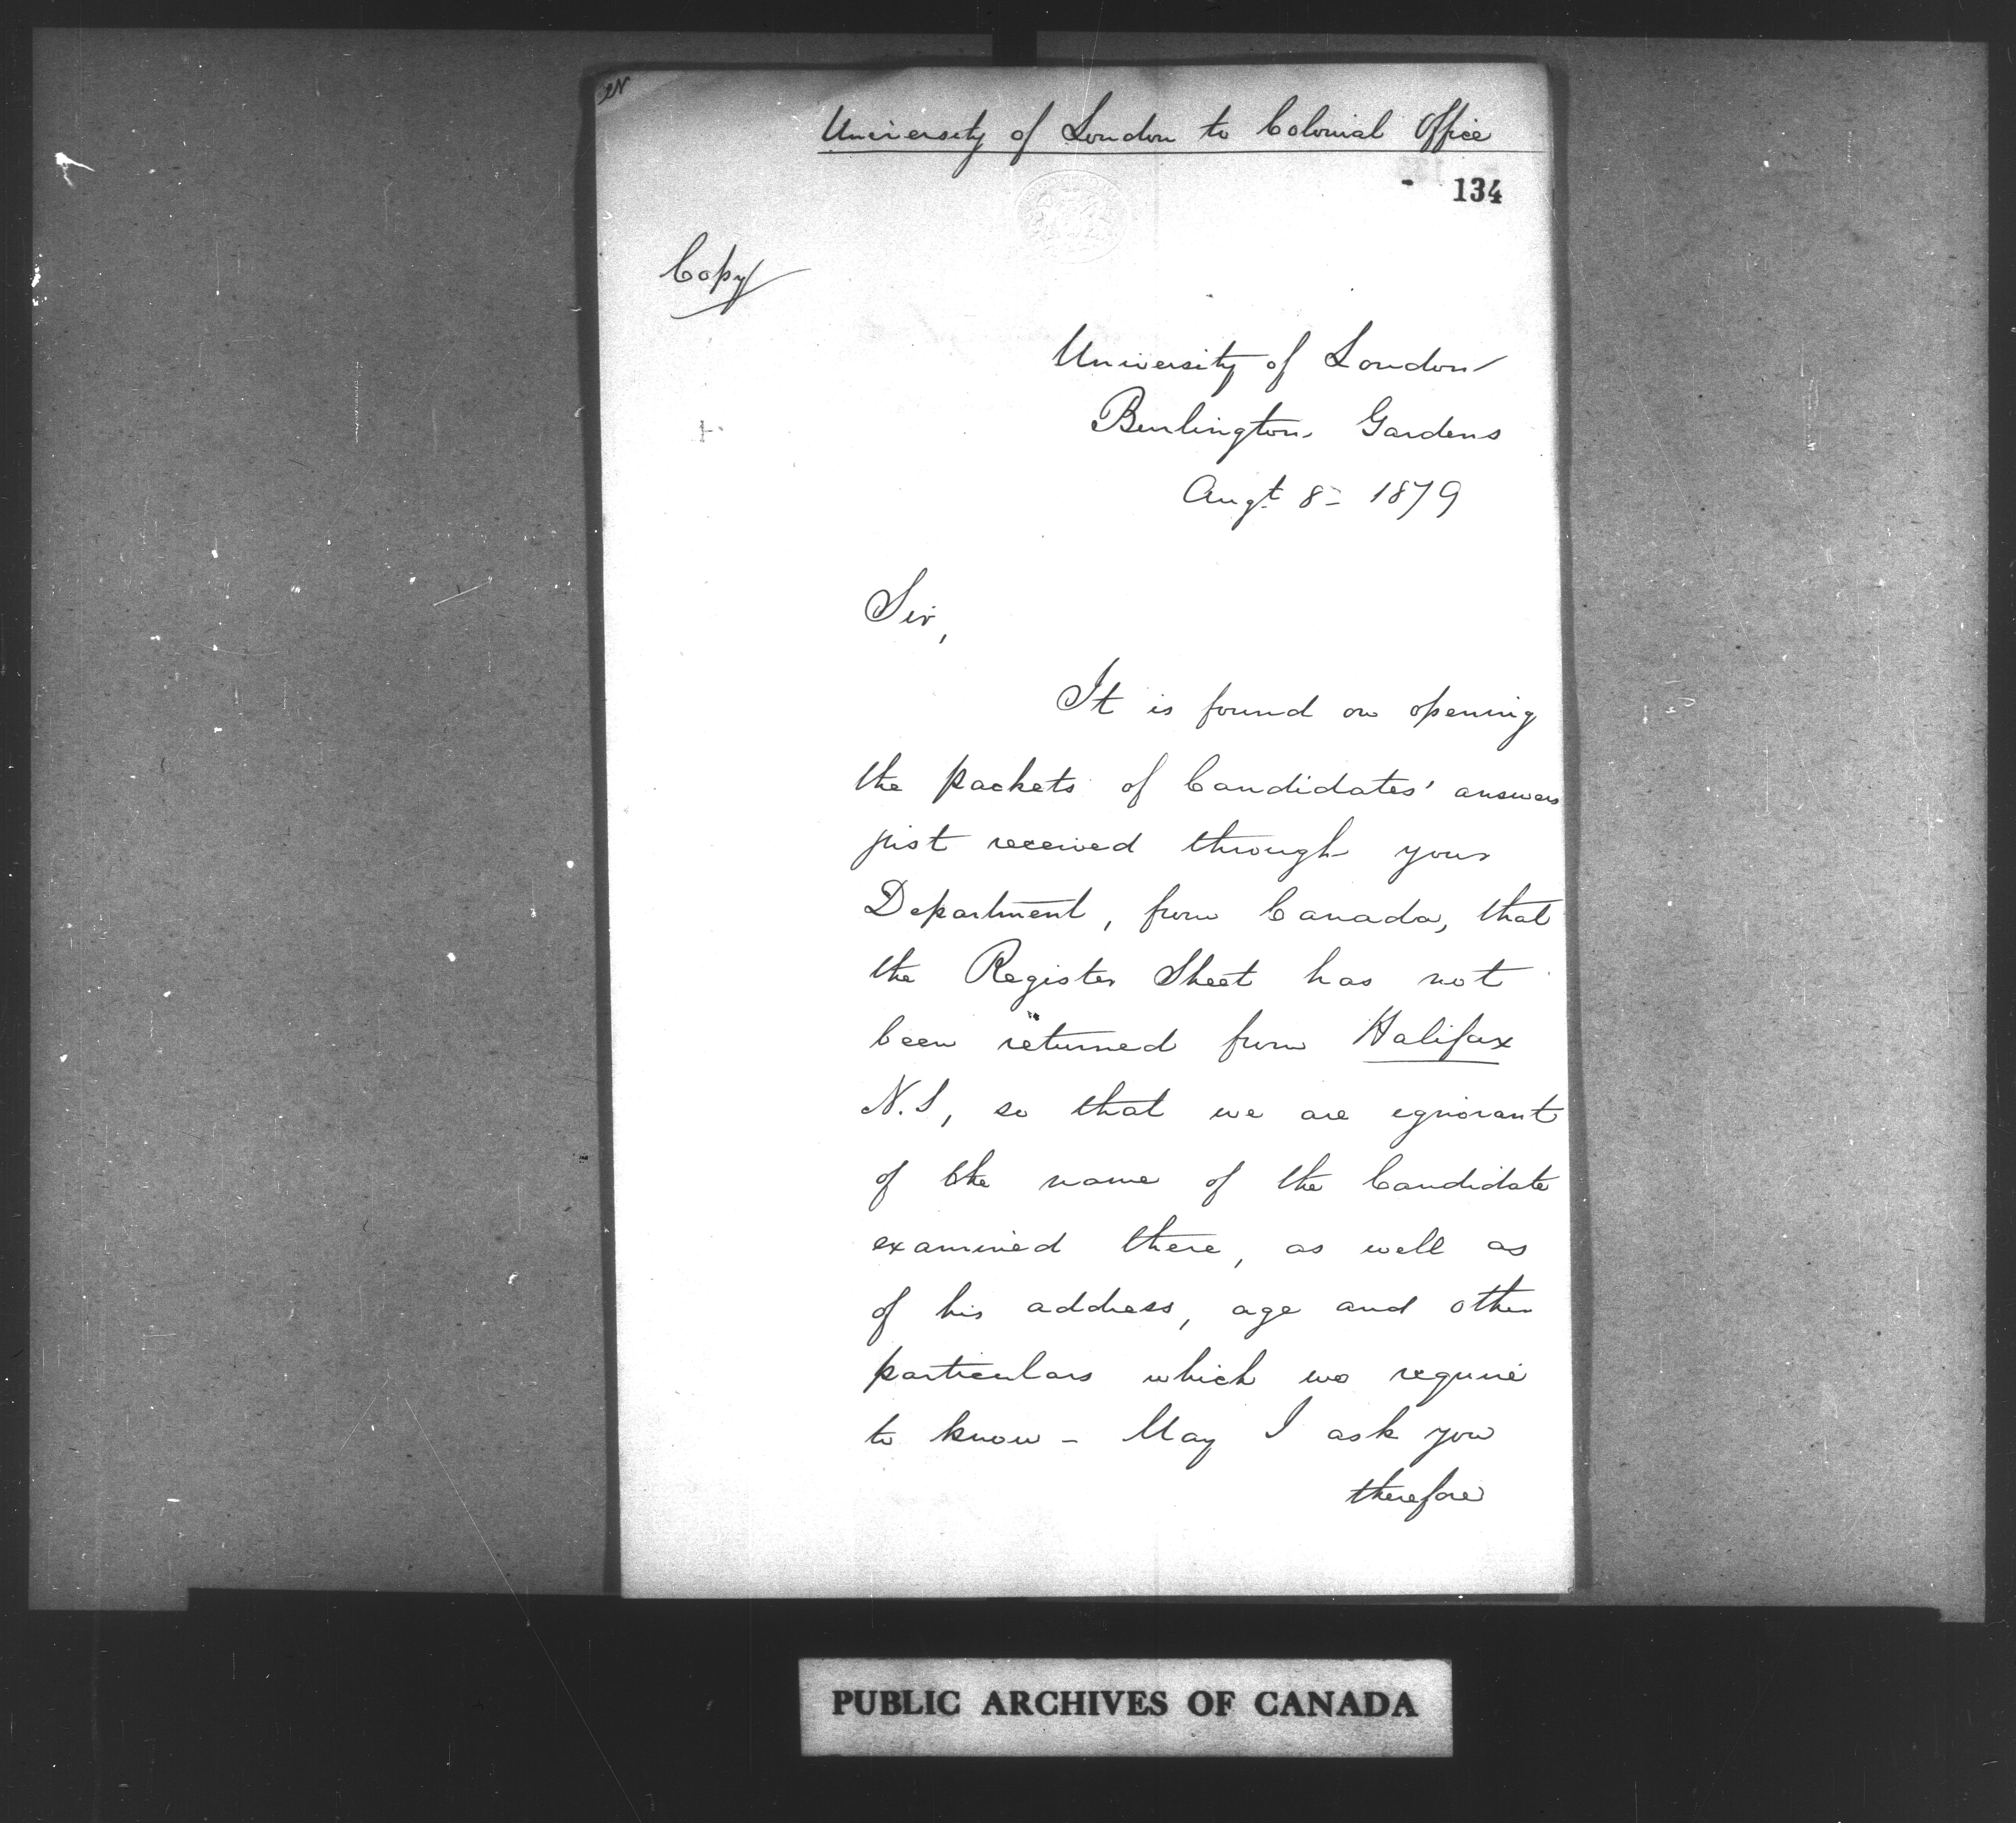 University of London to Colonial Office
134
Copy
University of London
Burlington Gardens
Augt 8= 1879
Sir,
It is found on opening
the packets of Candidates' answers
just received through your
Department, from Canada, that
the Register Sheet has not
been returned from Halifax
N.S, so that we are ignorant
of the name of the Candidate
examined there, as well as
of his address, age and other
particulars which we require
to know - May I ask you
therefore
PUBLIC ARCHIVES OF CANADA